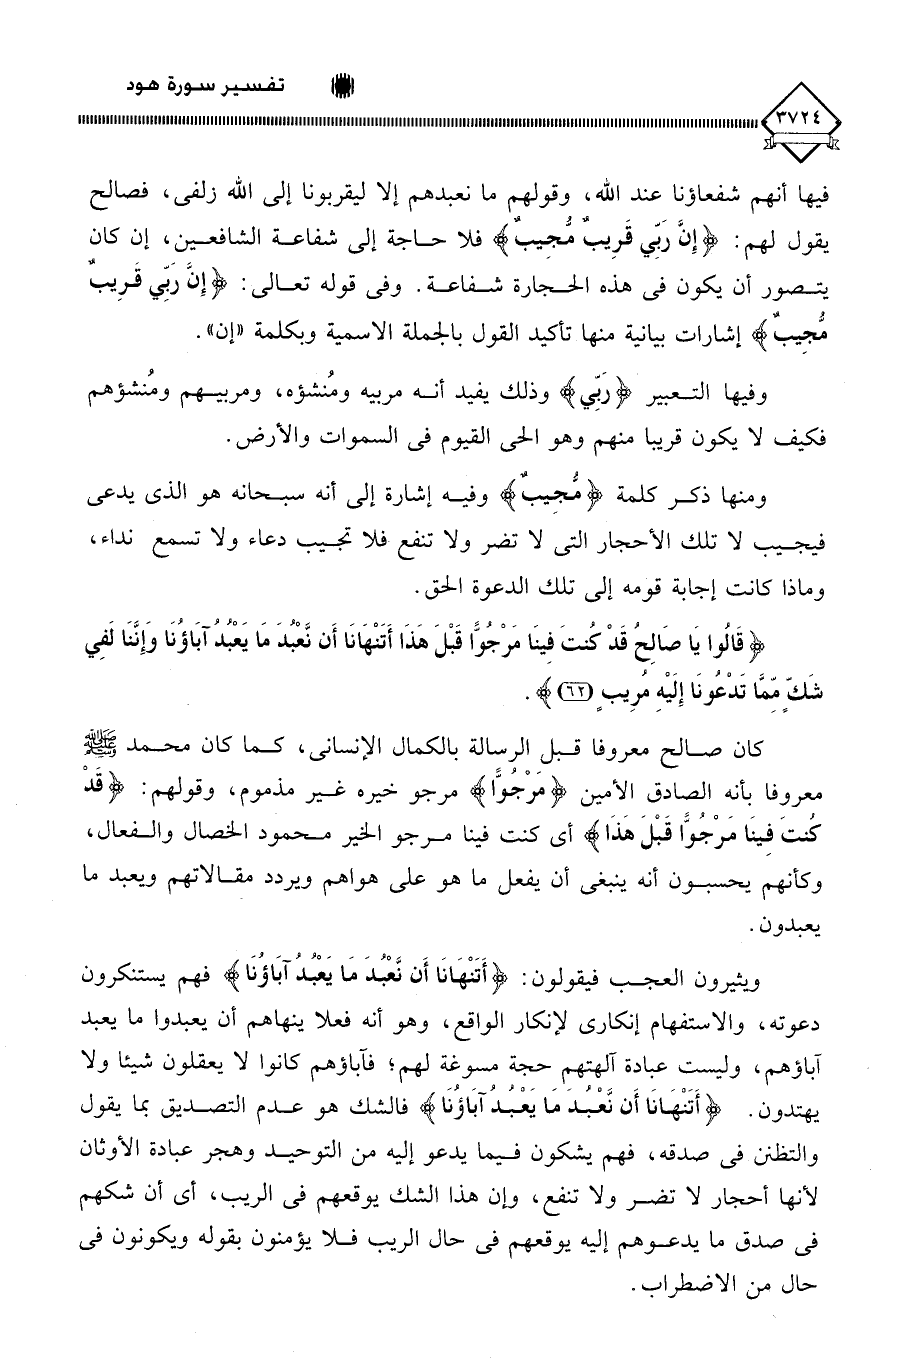 تفسير سورة هود
٣٧٢٤
فيها أنهم شفعاؤنا عند الله، وقولهم ما نعبدهم إلا ليقربونا إلى الله زلفى، فصالح
يقول لهم: ﴿إِنَّ رَبِّي قَرِيبٌ مُّجِيبٌ﴾ فلا حاجة إلى شفاعة الشافعين، إن كان
يتصور أن يكون فى هذه الحجارة شفاعة. وفى قوله تعالى: ﴿إِنَّ رَبِّي قَرِيبٌ
مُّجِيبٌ﴾ إشارات بيانية منها تأكيد القول بالجملة الاسمية وبكلمة «إن».
وفيها التعبير ﴿رَبِّي﴾ وذلك يفيد أنه مربيه ومُنشؤه، ومربيهم ومُنشؤهم
فكيف لا يكون قريبا منهم وهو الحى القيوم فى السموات والأرض.
ومنها ذكر كلمة ﴿مُّجِيبٌ﴾ وفيه إشارة إلى أنه سبحانه هو الذى يدعى
فيجيب لا تلك الأحجار التى لا تضر ولا تنفع فلا تجيب دعاء ولا تسمع نداء،
وماذا كانت إجابة قومه إلى تلك الدعوة الحق.
﴿قَالُوا يَا صَالِحُ قَدْ كُنتَ فِينَا مَرْجُوًّا قَبْلَ هَذَا أَتَنْهَانَا أَن نَّعْبُدَ مَا يَعْبُدُ آبَاؤُنَا وَإِنَّنَا لَفِي
شَكٍّ مِّمَّا تَدْعُونَا إِلَيْهِ مُرِيبٍ (٦٢)﴾.
كان صالح معروفا قبل الرسالة بالكمال الإنسانى، كما كان محمد ﷺ
معروفا بأنه الصادق الأمين ﴿مَرْجُوًّا﴾ مرجو خيره غير مذموم، وقولهم: ﴿قَدْ
كُنتَ فِينَا مَرْجُوًّا قَبْلَ هَذَا﴾ أى كنت فينا مرجو الخير محمود الخصال والفعال،
وكأنهم يحسبون أنه ينبغى أن يفعل ما هو على هواهم ويردد مقالاتهم ويعبد ما
يعبدون.
ويثيرون العجب فيقولون: ﴿أَتَنْهَانَا أَن نَّعْبُدَ مَا يَعْبُدُ آبَاؤُنَا﴾ فهم يستنكرون
دعوته، والاستفهام إنكارى لإنكار الواقع، وهو أنه فعلا ينهاهم أن يعبدوا ما يعبد
آباؤهم، وليست عبادة آلهتهم حجة مسوغة لهم؛ فآباؤهم كانوا لا يعقلون شيئا ولا
يهتدون. ﴿أَتَنْهَانَا أَن نَّعْبُدَ مَا يَعْبُدُ آبَاؤُنَا﴾ فالشك هو عدم التصديق بما يقول
والتظنن فى صدقه، فهم يشكون فيما يدعو إليه من التوحيد وهجر عبادة الأوثان
لأنها أحجار لا تضر ولا تنفع، وإن هذا الشك يوقعهم فى الريب، أى أن شكهم
فى صدق ما يدعوهم إليه يوقعهم فى حال الريب فلا يؤمنون بقوله ويكونون فى
حال من الاضطراب.